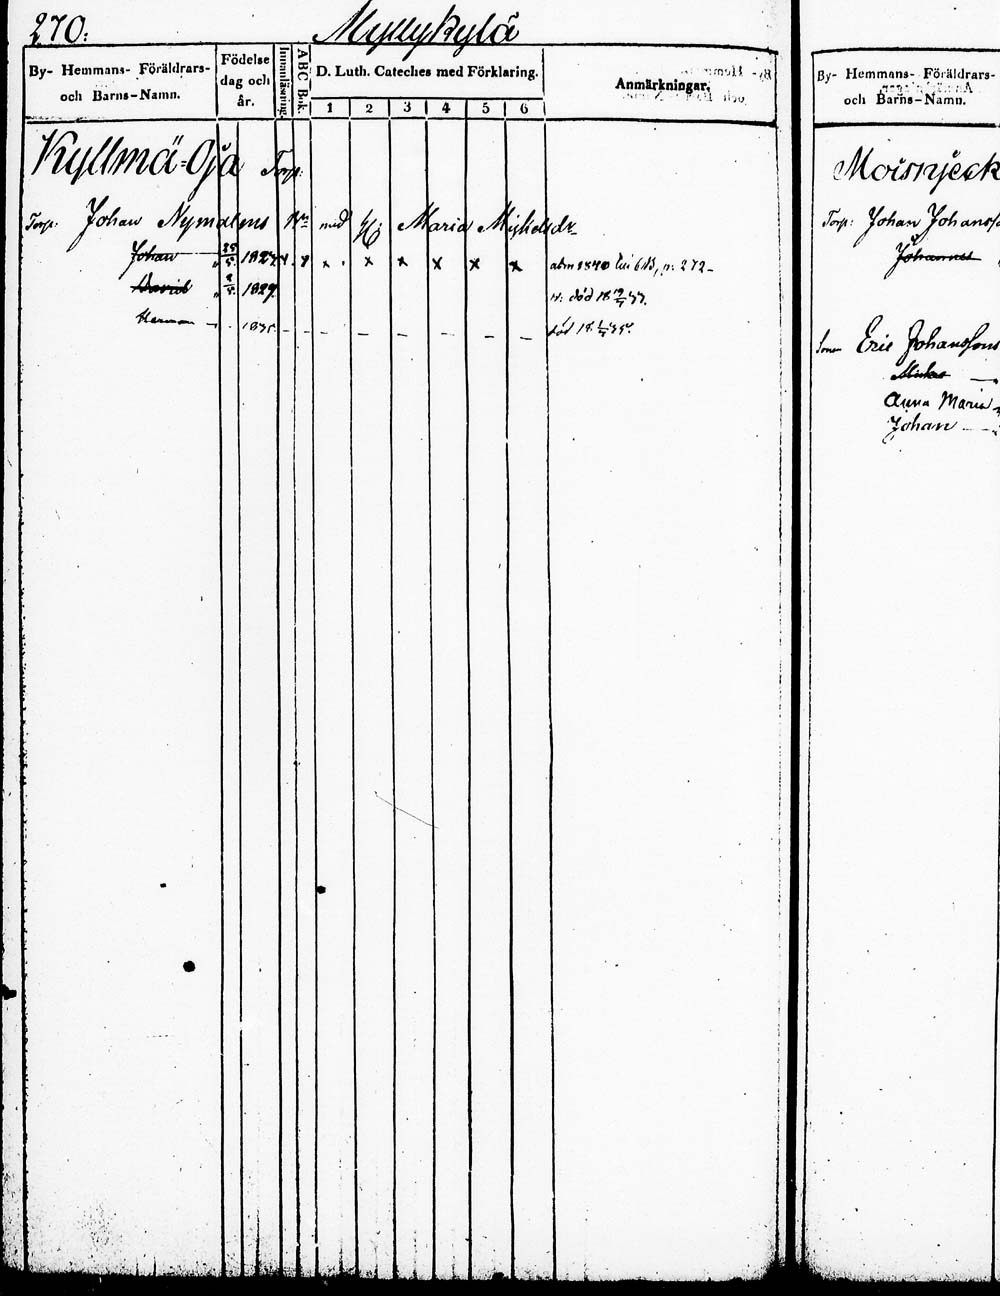 270.
Myllykylä
By- Hemmans- Föräldrars-
och Barns-Namn.
Födelse
dag och
år.
Innanläsning.
ABC Bok.
D. Luth. Cateches med Förklaring.
1 2 3 4 5 6
Anmärkningar.
Kyllmä-Oja Torp:
Torp: Johan med H: Maria Michelsdr
Johan 25/5 1827 x x x x x x x x 1840 p: 272
David 1829 död
Herman 1835 död
By- Hemmans- Föräldrars-
och Barns-Namn.
Torp: Johan
Johannes
Son Eric Johanssons
Anna Maria
Johan